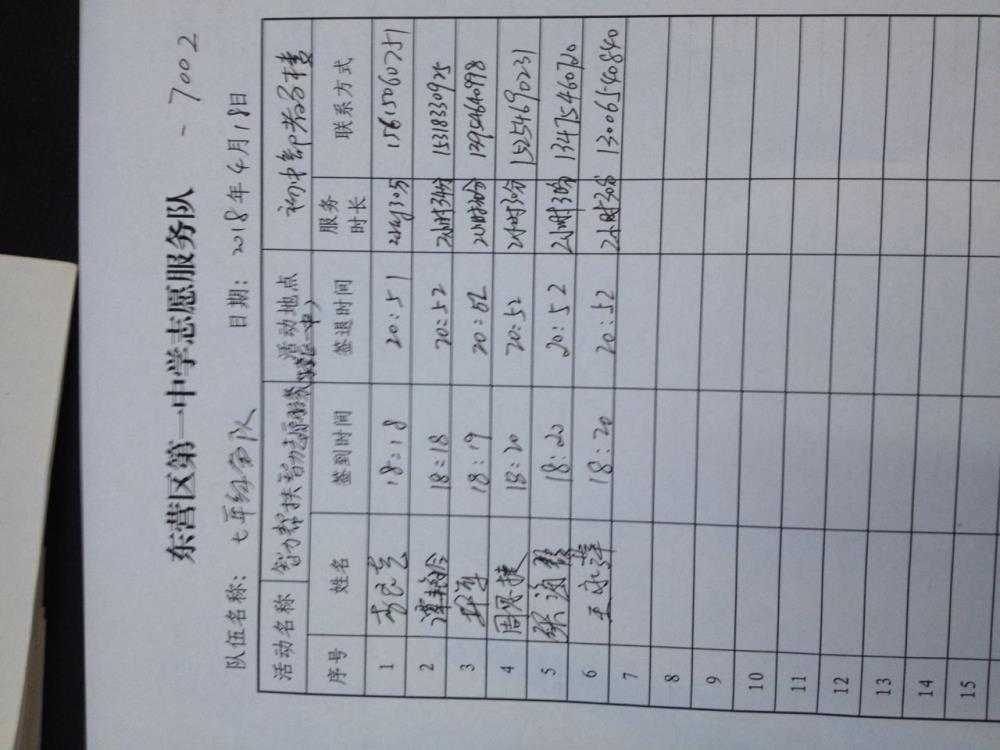 东营区第一中学志愿服务队 - 7002
队伍名称: 七年级分队 日期: 2018年4月18日
活动名称 智力帮扶 活动地点 初中部
序号 姓名 签到时间 签退时间 服务时长 联系方式
1 18:18 20:51 2小时30分 15615060751
2 18:18 20:52 2小时34分 15318330925
3 18:19 20:52 13954640998
4 周 18:20 20:52 2小时30分 15254690231
5 张 18:20 20:52 2小时30分 13475460720
6 王永萍 18:20 20:52 2小时30分 13006540840
7
8
9
10
11
12
13
14
15